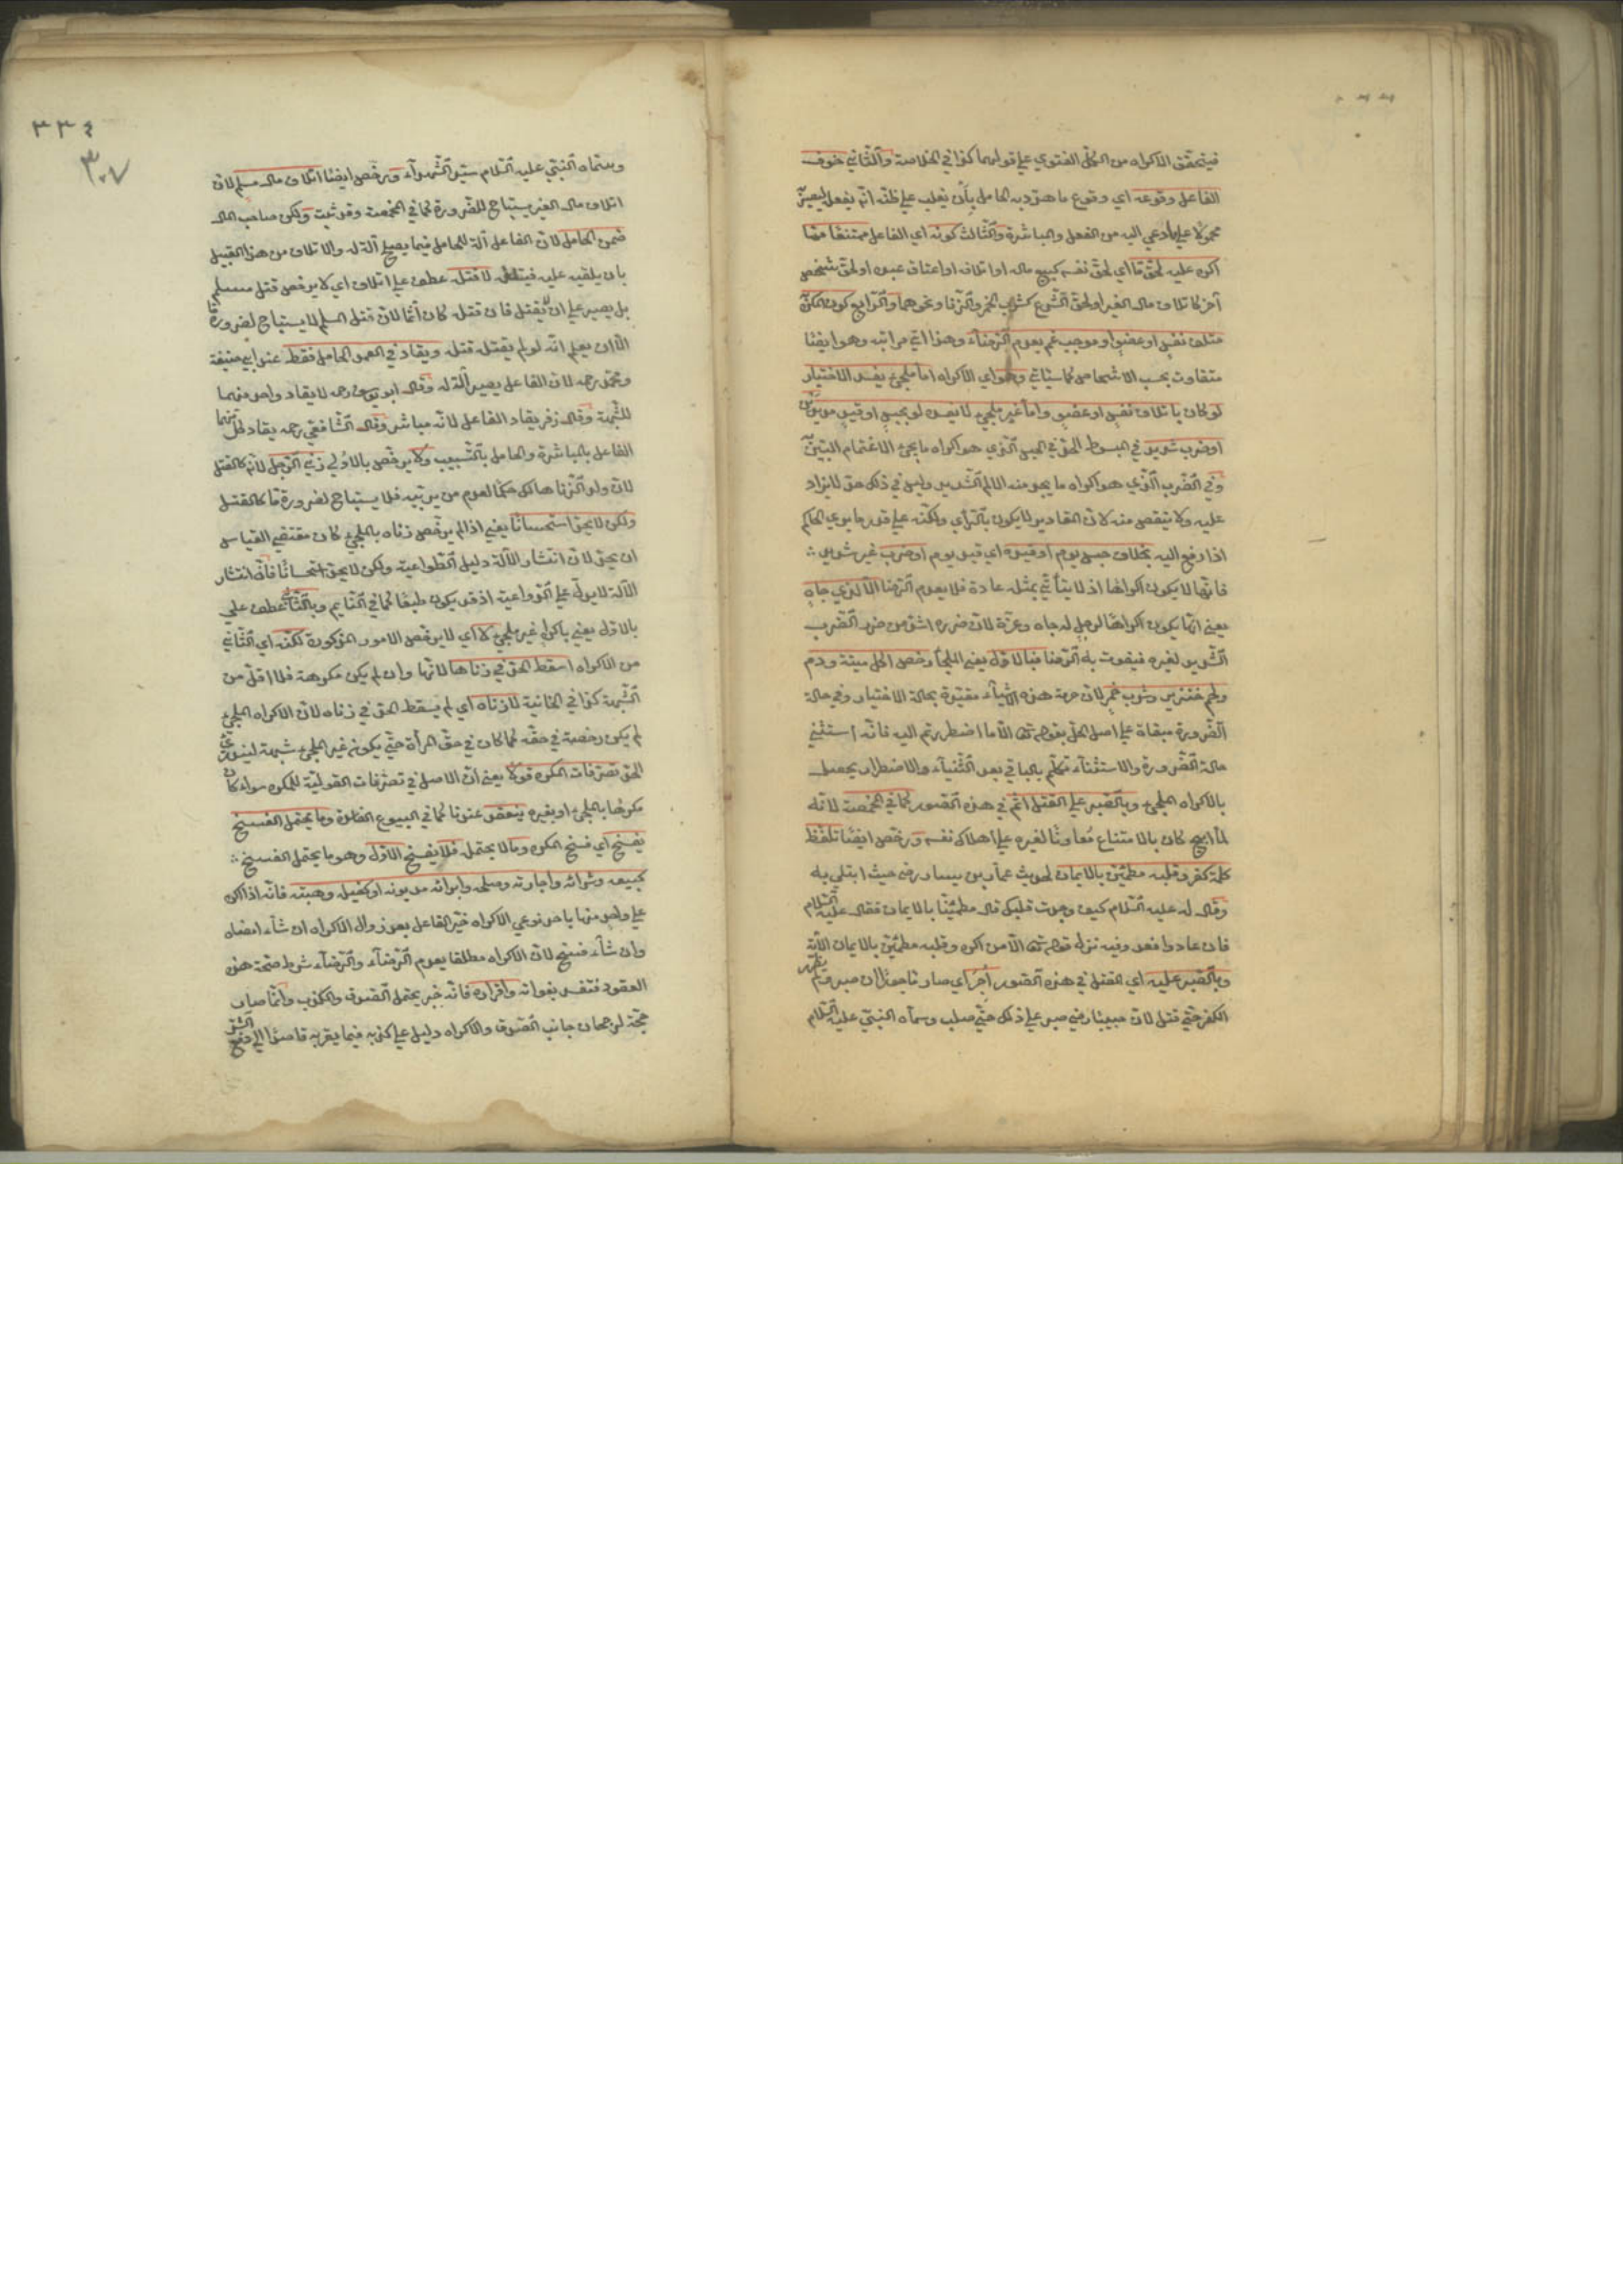 فيتحقق الاكراه من الكل الفتوي علي قولهما كذا في الخلاصة والثاني خوف
الفاعل وقوعه اي وقوع ما هدد به الحامل بأن يغلب علي ظنه انه يفعل ليصير
محمولا علي ما دعي اليه من الفعل والمباشرة والثالث كونه اي الفاعل ممتنعا عما
اكره عليه لحق ما اي لحق نفسه كبيع ماله او اتلافه او اعتاق عبده او لحق شخص
آخر كاتلاف مال الغير او لحق الشرع كشرب الخمر والزنا ونحوهما والرابع كون المكره
متلف نفس او عضو او موجب غم يعدم الرضاء وهذا ادني مراتبه وهو ايضا
متفاوت بحسب الاشخاص كما سيأتي وهو اي الاكراه اما ملجئ يفسد الاختيار
لو كان باتلاف نفس او عضو واما غير ملجئ لا يفسده لو بحبس او قيد مديدين
او ضرب شديد في المبسوط الحد في الحبس الذي هو اكراه ما يجئ الاغتمام البين
وفي الضرب الذي هو اكراه ما يجد منه الالم الشديد وليس في ذلك حد لا يزاد
عليه ولا ينقص منه لان المقادير لا يكون بالرأي ولكنه علي قدر ما يري الحاكم
اذا رفع اليه بخلاف حبس يوم او قيده اي قيد يوم او ضرب غير شديد
فانها لا يكون اكراها اذ لا يتأتي بمثله عادة فلا يعدم الرضا الا لذي جاه
يعني انما يكون اكراها لرجل له جاه وعزة لان ضرره اشد من ضرر الضرب
الشديد لغيره فيفوت به الرضا فبالاول يعني الملجأ رخص اكل ميتة ودم
ولحم خنزير وشرب خمر لان حرمة هذه الاشياء مقيدة بحالة الاختيار وفي حالة
الضرورة مبقاة علي اصل الحل بقوله تعالى الا ما اضطررتم اليه فانه استثني
حالة الضرورة والاستثناء تكلم بالباقي بعد الثنياء والاضطرار يحصل
بالاكراه الملجئ وبالصبر علي القتل اثم في هذه الصور كما في المخمصة لانه
لما ابيح كان بالامتناع معاونا لغيره علي اهلاك نفسه ورخص ايضا تلفظ
كلمة كفر وقلبه مطمئن بالايمان لحديث عمار بن يسار رضي حيث ابتلي به
وقال له عليه السلام كيف وجدت قلبك قال مطمئنا بالايمان فقال عليه السلام
فان عادوا فعد وفيه نزله قوله تعالى الا من اكره وقلبه مطمئن بالايمان الآية
وبالصبر عليه اي القتل في هذه الصور أجر اي صار مأجورا ان صبر ولم يظهر
الكفر حتي قتل لان خبيبا رضي صبر علي ذلك حتي صلب وسماه النبي عليه السلام
٣٣٤
٣٠٧
وسماه النبي عليه السلام سيد الشهداء ورخص ايضا اتلاف مال مسلم لان
اتلاف مال الغير يستباح للضرورة كما في المخمصة وقد ثبت ولكن صاحب المال
ضمن الحامل لان الفاعل آلة للحامل فيما يصلح آلة له والاتلاف من هذا القبيل
بان يلقيه عليه فيتلفه لا قتله عطف علي اتلاف اي لا يرخص قتل مسلم
بل يصبر علي ان يقتل فان قتله كان آثما لان قتل المسلم لا يستباح لضرورة ما
الا ان يعلم انه لو لم يقتله قتله ويقاد في العمد الحامل فقط عند ابي حنيفة
ومحمد رحمه لان الفاعل يصير آلة له وقال ابو يوسف رحمه لا يقاد واحد منهما
للشبهة وقال زفر يقاد الفاعل لانه مباشر وقال الشافعي رحمه يقاد كل منهما
الفاعل بالمباشرة والحامل بالتسبيب ولا يرخص بالاولي زني الرجل لانه كالقتل
لان ولد الزنا هالك حكما لعدم من يربيه فلا يستباح لضرورة ما كالقتل
ولكن لا يحد استحسانا يعني اذا لم يرخص زناه بالملجئ كان مقتضي القياس
ان يحد لان انتشار الآلة دليل الطواعية ولكن لا يحد استحسانا فان انتشار
الآلة لا يدل علي الطواعية اذ قد يكون طبعا كما في النايم وبالثاني عطف علي
بالاول يعني باكراه غير ملجئ لا اي لا يرخص الامور المذكورة لكنه اي الثاني
من الاكراه اسقط الحد في زناها لانها وان لم يكن مكرهة فلا اقل من
الشبهة كذا في الخانية لا زناه اي لم يسقط الحد في زناه لان الاكراه الملجئ
لم يكن رخصة في حقه كما كان في حق المرأة حتي يكون غير الملجئ شبهة ليندرئ
الحد تصرفات المكره قولا يعني ان الاصل في تصرفات القولية للمكره سواء كان
مكرها بالملجئ او بغيره ينعقد عندنا كما في البيوع الفاسدة وما يحتمل الفسخ
يفسخ اي فسخ المكره وما لا يحتمله فلا يفسخ الاول وهو ما يحتمل الفسخ
كبيعه وشرائه واجارته وصلحه وابرائه مديونه او كفيله وهبته فانه اذا اكره
علي واحد منها باحد نوعي الاكراه خير الفاعل بعد زوال الاكراه ان شاء امضاه
وان شاء فسخ لان الاكراه مطلقا يعدم الرضاء والرضاء شرط صحة هذه
العقود فتفسد بفواته واقراره فانه خبر يحتمل الصدق والكذب وانما صار
حجة لرجحان جانب الصدق والاكراه دليل علي كذبه فيما يقر به قاصدا الي دفع الشر